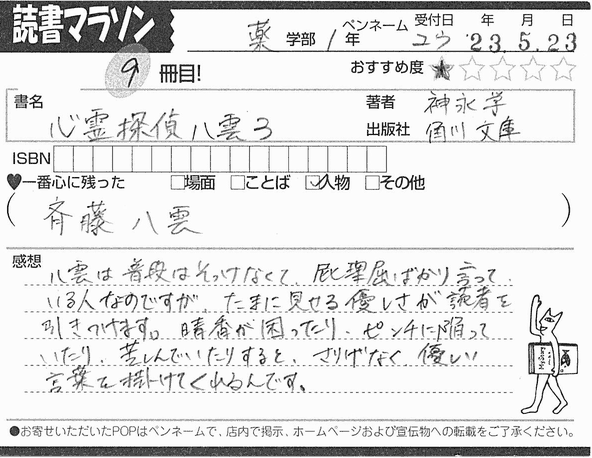 読書マラソン
薬 学部 1 年 ペンネーム ユウ 受付日 '23.年5.月23日
9 冊目! おすすめ度 ★☆☆☆☆
書名 心霊探偵八雲3
著者 神永学
出版社 角川文庫
ISBN
♥一番心に残った □場面 □ことば ☑人物 □その他
(斉藤 八雲)
感想
八雲は普段はそっけなくて、屁理屈ばかり言って
いる人なのですが たまに見せる優しさが読者を
引きつけます。晴香が困ったり、ピンチに陥って
いたり、苦しんでいたりすると、さりげなく優しい
言葉を掛けてくれるんです。
●お寄せいただいたPOPはペンネームで、店内で掲示、ホームページおよび宣伝物への転載をご了承ください。